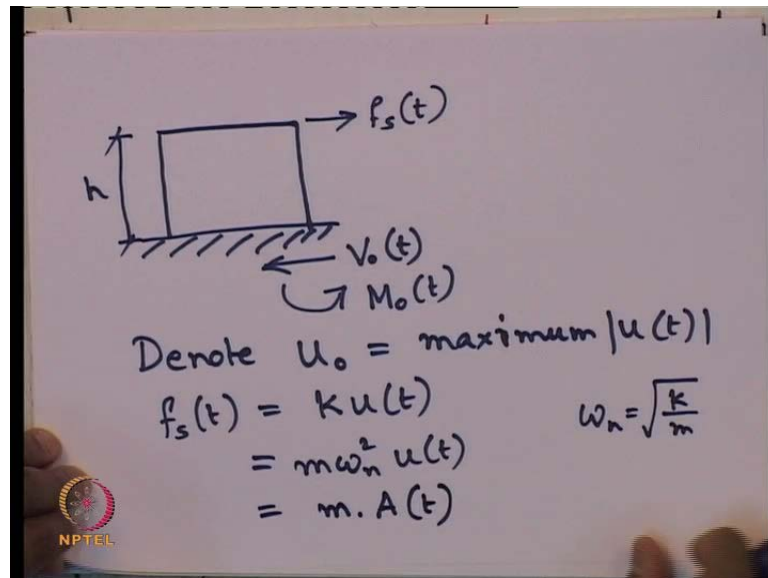 fs(t)
h
V₀(t)
M₀(t)
Denote u₀ = maximum |u(t)|
fs(t) = K u(t)
ωn = √(K/m)
= mωn² u(t)
= m. A(t)
NPTEL